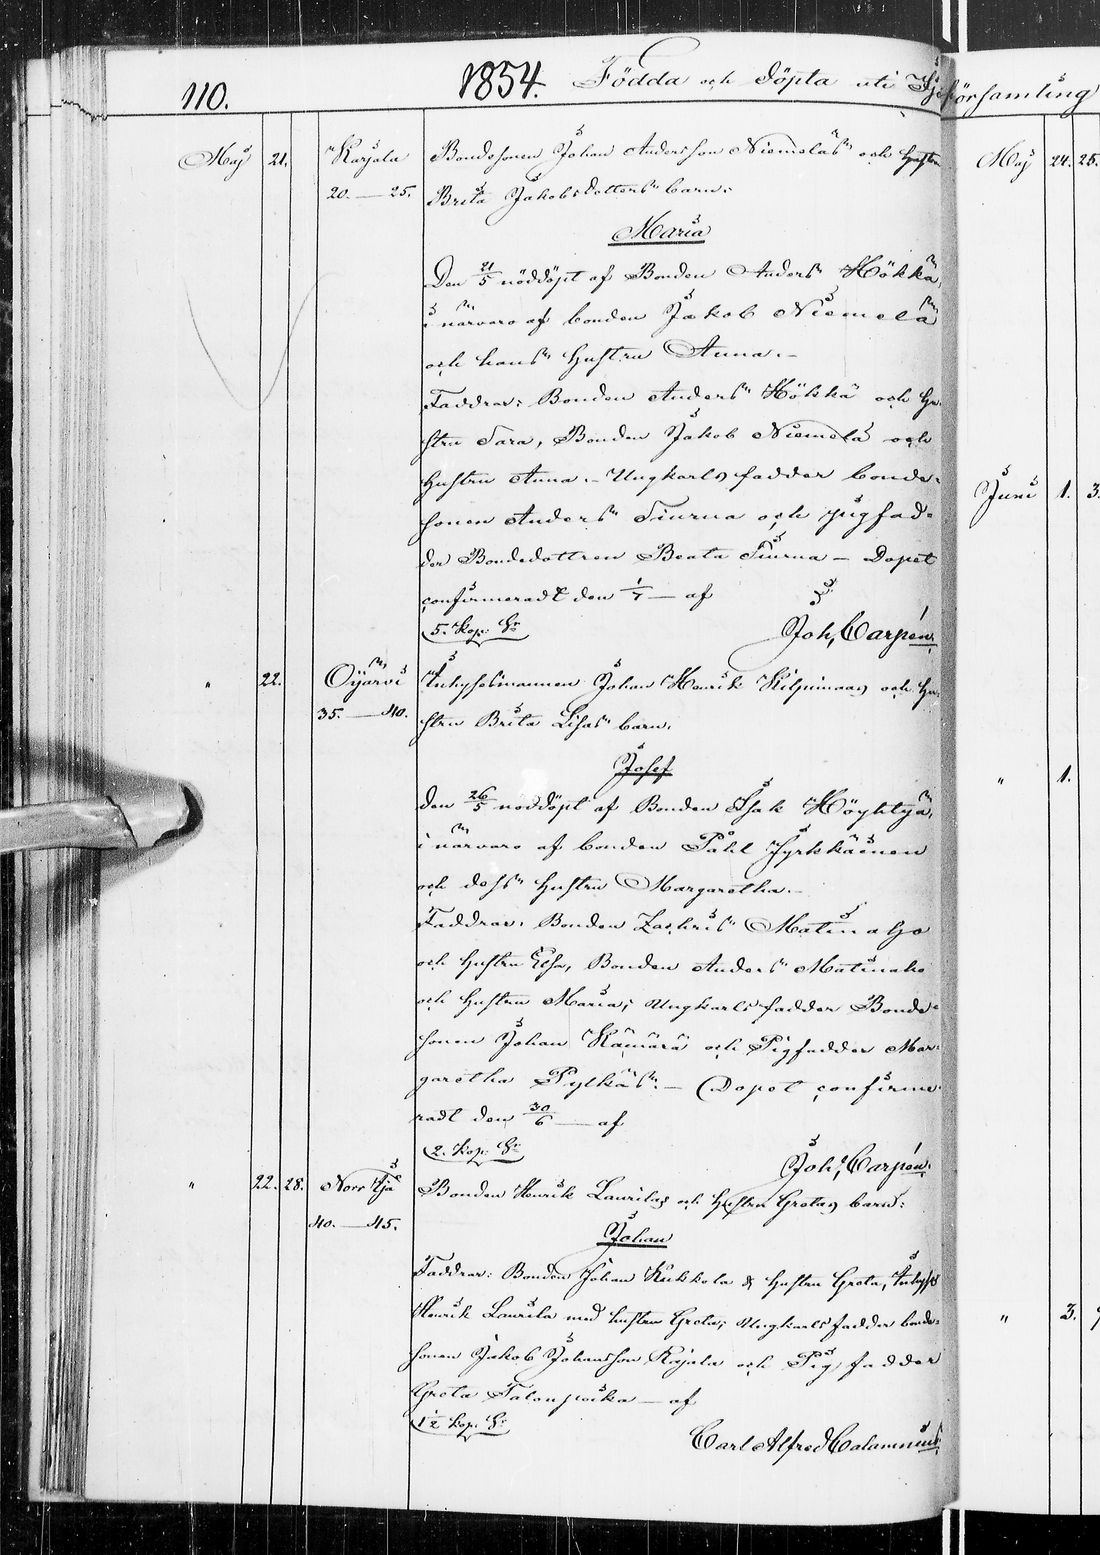 110.
1854. Födda och döpta uti Ijo församling
Maj 21. Karjala Bondesonen Johan Andersson Niemeläs och hustru
20. — 25. Brita Jakobsdotters barn:
Maria
Den 21/5 nöddöpt af Bonden Anders Hökkä,
i närvaro af bonden Jakob Niemelä
och hans hustru Anna.–
Faddrar: Bonden Anders Hökkä och hu-
stru Sara, Bonden Jakob Niemelä och
hustru Anna.– Ungkarlsfadder bonde-
sonen Anders Tiurna och pigfad-
der Bondedottren Beata Tiurna — Dopet
confirmeradt den 1/7 — af
5. kop. Sr
Joh. Carpén.
" 22. Oijärvi Inhysesmannen Johan Henrik Kilpimaas och hu-
35. — 40. stru Brita Lisas barn.
Josef
den 26/5 nöddöpt af Bonden Isak Höyhtyä,
i närvaro af bonden Påhl Jyrkkäinen
och dess hustru Margaretha.–
Faddrar: Bonden Zachris Matinaho
och hustru Elsa, Bonden Anders Matinaho
och hustru Maria; Ungkarlsfadder Bonde-
sonen Johan Kämärä och Pigfadder Mar-
garetha Pylkäs.– Dopet confirme-
radt den 30/6 — af
2. kop. Sr
Joh. Carpén.
" 22. 28. Norr Ijå Bonden Henrik Laurilas och hustru Gretas barn:
40. — 45.
Johan
Faddrar: Bonden Johan Kukkola & hustru Greta, Inhyses
Henrik Laurila med hustru Greta; Ungkarlsfadder bonde-
sonen Jakob Johansson Kajala och Pigfadder
Greta Talonpoika — af
1½ kop. Sr
Carl Alfred Calamnius
Maj 24. 25.
Juni 1. 3.
" 1.
" 3.